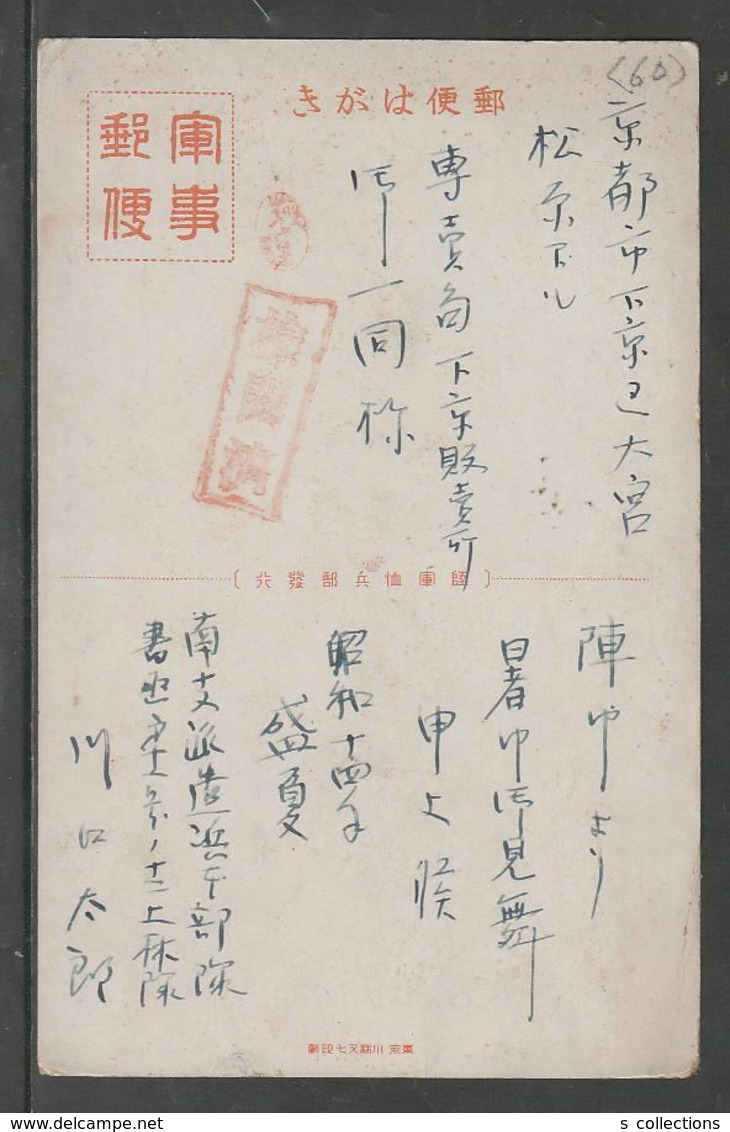 <60>
郵便はがき
軍事郵便
京都市下京区大宮
松原下ル
専売局下京販売所
御一同様
検閲済
〔陸軍恤兵部發行〕
陣中より
暑中御見舞
申上候
昭和十四年
盛夏
南支派遣浜本部隊
上林隊
川口太郎
東京 川瀬又七印刷
s collections